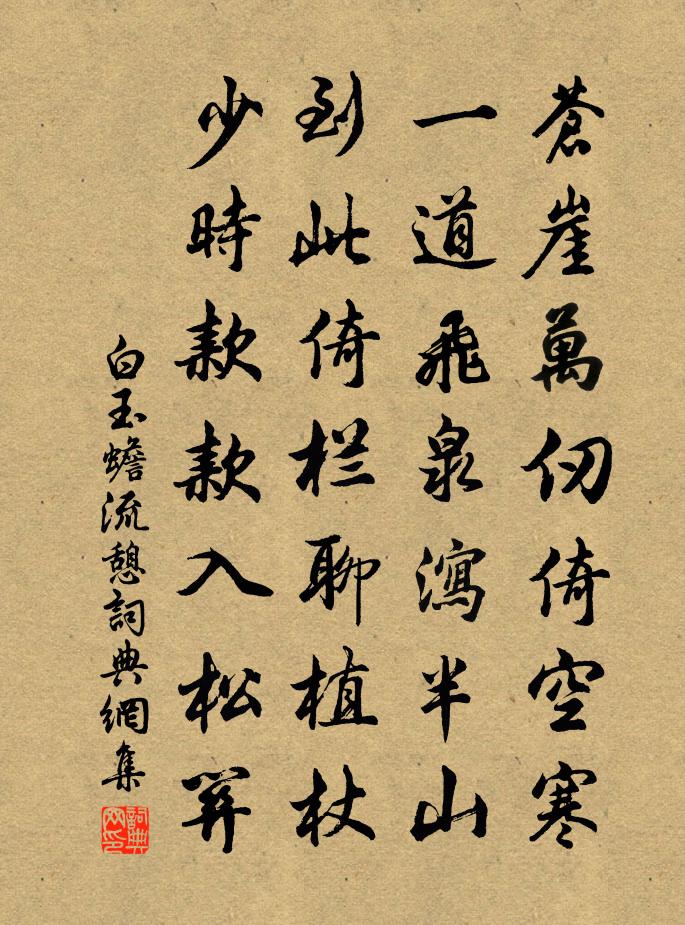 蒼崖萬仞倚空寒
一道飛泉瀉半山
到此倚栏聊植杖
少時款款入松關
白玉蟾流憩詞典網集
詞典网印